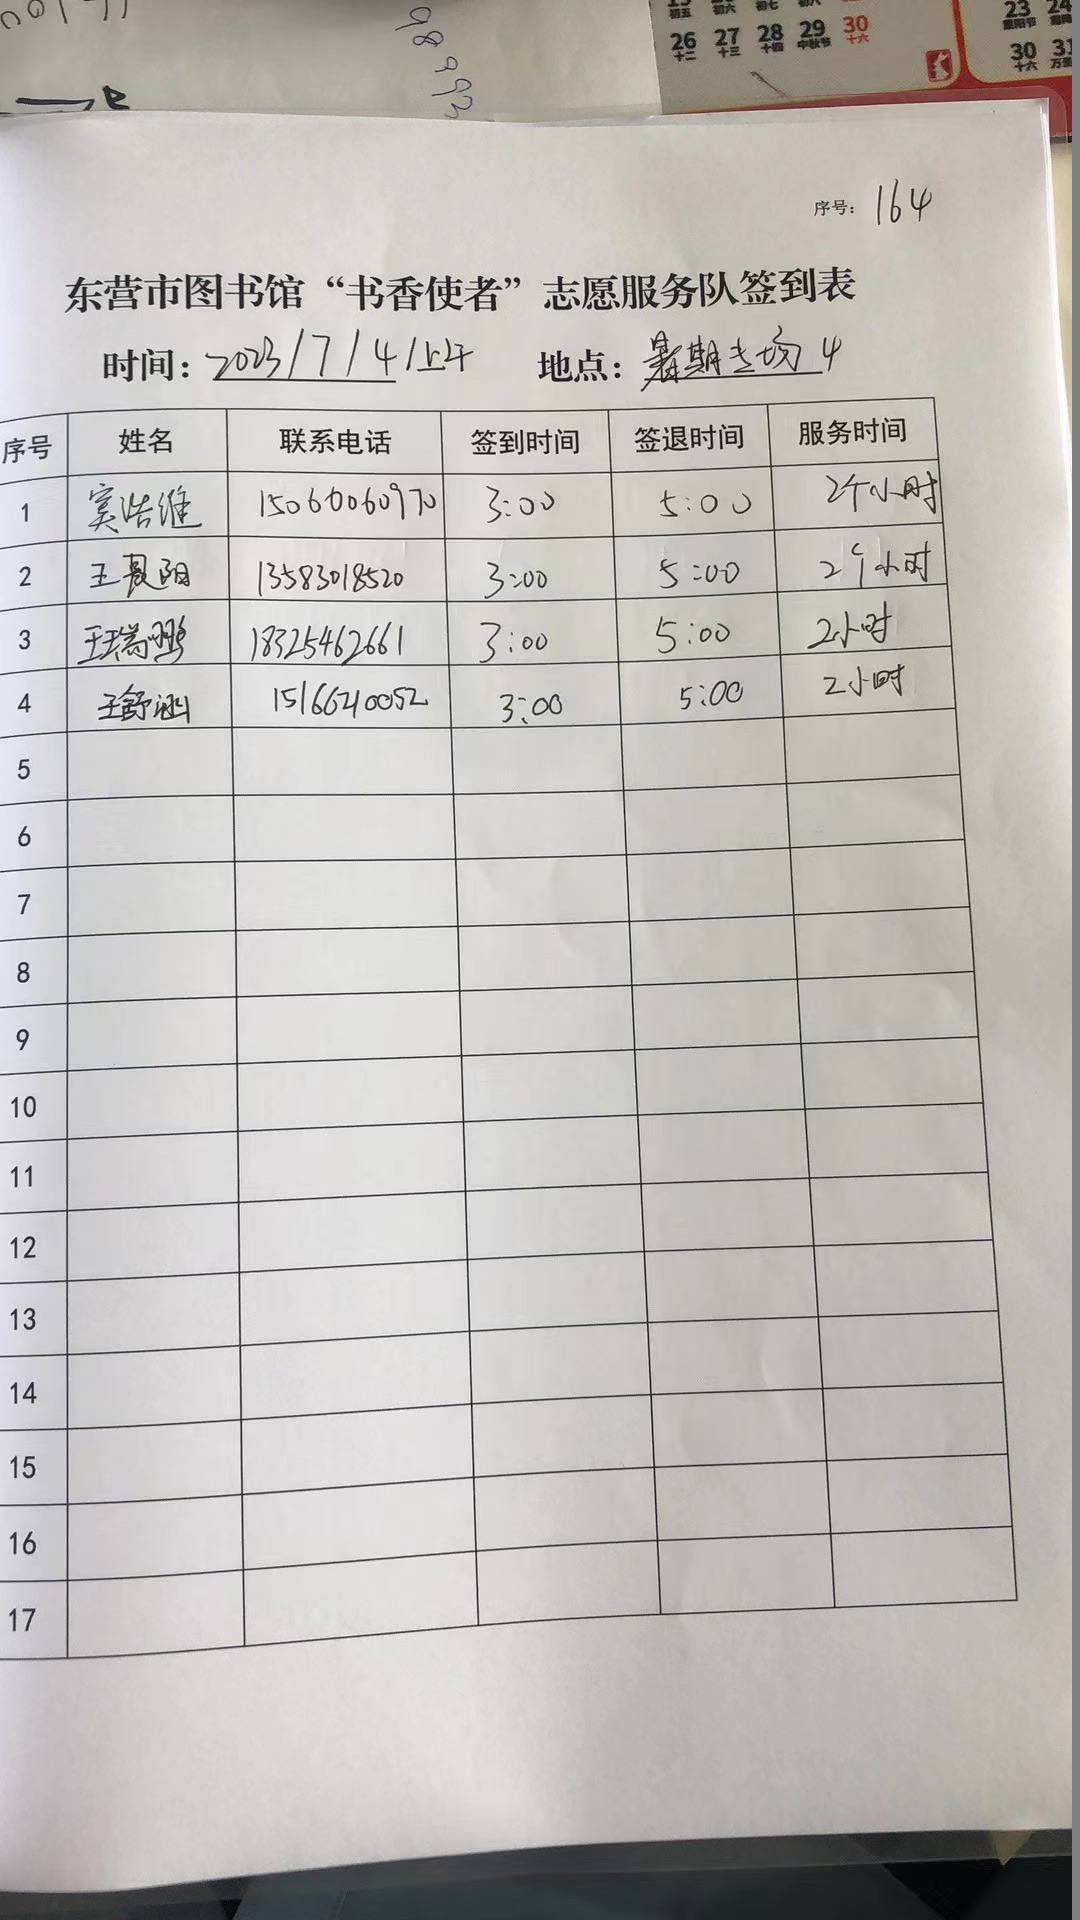 98993
26 27 28 29 30
十二 十三 十四 中秋节 十六
23 24
30 31
十六
序号: 164
东营市图书馆“书香使者”志愿服务队签到表
时间: 2023/7/4/上午 地点: 暑期专场 4
序号 姓名 联系电话 签到时间 签退时间 服务时间
1 窦浩维 15066060970 3:00 5:00 2个小时
2 王晨阳 13583018520 3:00 5:00 2个小时
3 王瑞鹏 18325462661 3:00 5:00 2小时
4 王舒涵 15166210052 3:00 5:00 2小时
5
6
7
8
9
10
11
12
13
14
15
16
17